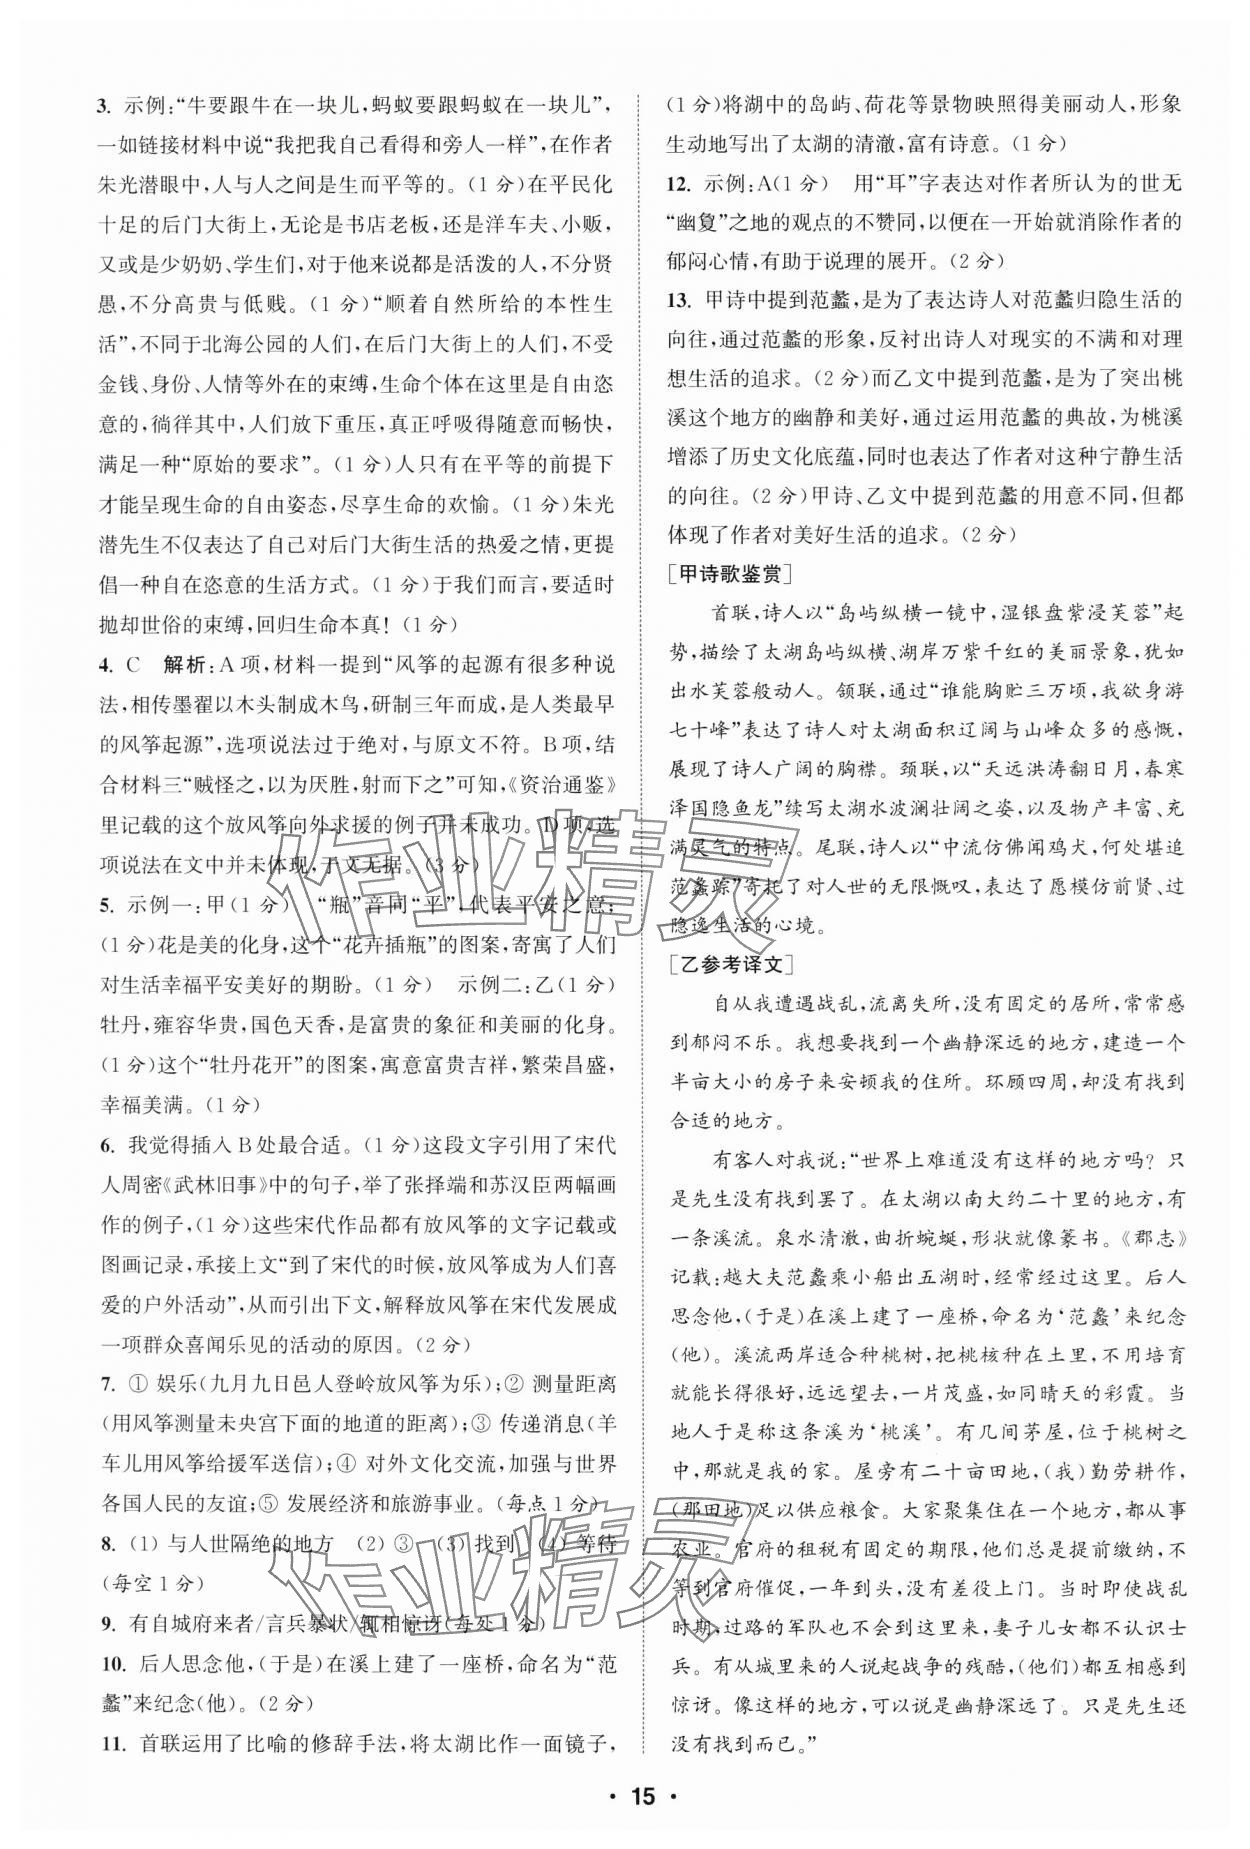 3. 示例:“牛要跟牛在一块儿,蚂蚁要跟蚂蚁在一块儿”,
一如链接材料中说“我把我自己看得和旁人一样”,在作者
朱光潜眼中,人与人之间是生而平等的。(1 分)在平民化
十足的后门大街上,无论是书店老板,还是洋车夫、小贩,
又或是少奶奶、学生们,对于他来说都是活泼的人,不分贤
愚,不分高贵与低贱。(1 分)“顺着自然所给的本性生
活”,不同于北海公园的人们,在后门大街上的人们,不受
金钱、身份、人情等外在的束缚,生命个体在这里是自由恣
意的,徜徉其中,人们放下重压,真正呼吸得尽情畅快,
满足一种“原始的要求”。(1 分)人只有在平等的前提下
才能呈现生命的自由姿态,尽享生命的欢愉。(1 分)朱光
潜先生不仅表达了自己对后门大街生活的热爱之情,更提
倡一种自在恣意的生活方式。(1 分)于我们而言,要适时
抛却世俗的束缚,回归生命本真!(1 分)
4. C 解析:A 项,材料一提到“风筝的起源有很多种说
法,相传墨翟以木头制成木鸟,研制三年而成,是人类最早
的风筝起源”,选项说法过于绝对,与原文不符。B 项,结
合材料三“贼怪之,以为厌胜,射而下之”可知,《资治通鉴》
里记载的这个放风筝向外求援的例子并未成功。D 项,选
项说法在文中并未体现,于文无据。(3 分)
5. 示例一:甲(1 分) “瓶”音同“平”,代表平安之意;
(1 分)花是美的化身,这个“花卉插瓶”的图案,寄寓了人们
对生活幸福平安美好的期盼。(1 分) 示例二:乙(1 分)
牡丹,雍容华贵,国色天香,是富贵的象征和美丽的化身。
(1 分)这个“牡丹花开”的图案,寓意富贵吉祥,繁荣昌盛,
幸福美满。(1 分)
6. 我觉得插入 B 处最合适。(1 分)这段文字引用了宋代
人周密《武林旧事》中的句子,举了张择端和苏汉臣两幅画
作的例子,(1 分)这些宋代作品都有放风筝的文字记载或
图画记录,承接上文“到了宋代的时候,放风筝成为人们喜
爱的户外活动”,从而引出下文,解释放风筝在宋代发展成
一项群众喜闻乐见的活动的原因。(2 分)
7. ① 娱乐(九月九日邑人登岭放风筝为乐);② 测量距离
(用风筝测量未央宫下面的地道的距离);③ 传递消息(羊
车儿用风筝给援军送信);④ 对外文化交流,加强与世界
各国人民的友谊;⑤ 发展经济和旅游事业。(每点 1 分)
8. (1) 与人世隔绝的地方 (2) ③ (3) 找到 (4) 等待
(每空 1 分)
9. 有自城府来者/言兵暴状/辄相惊讶(每处 1 分)
10. 后人思念他,(于是)在溪上建了一座桥,命名为“范
蠡”来纪念(他)。(2 分)
11. 首联运用了比喻的修辞手法,将太湖比作一面镜子,
(1 分)将湖中的岛屿、荷花等景物映照得美丽动人,形象
生动地写出了太湖的清澈,富有诗意。(1 分)
12. 示例:A(1 分) 用“耳”字表达对作者所认为的世无
“幽夐”之地的观点的不赞同,以便在一开始就消除作者的
郁闷心情,有助于说理的展开。(2 分)
13. 甲诗中提到范蠡,是为了表达诗人对范蠡归隐生活的
向往,通过范蠡的形象,反衬出诗人对现实的不满和对理
想生活的追求。(2 分)而乙文中提到范蠡,是为了突出桃
溪这个地方的幽静和美好,通过运用范蠡的典故,为桃溪
增添了历史文化底蕴,同时也表达了作者对这种宁静生活
的向往。(2 分)甲诗、乙文中提到范蠡的用意不同,但都
体现了作者对美好生活的追求。(2 分)
[甲诗歌鉴赏]
首联,诗人以“岛屿纵横一镜中,湿银盘紫浸芙蓉”起
势,描绘了太湖岛屿纵横、湖岸万紫千红的美丽景象,犹如
出水芙蓉般动人。领联,通过“谁能胸贮三万顷,我欲身游
七十峰”表达了诗人对太湖面积辽阔与山峰众多的感慨,
展现了诗人广阔的胸襟。颈联,以“天远洪涛翻日月,春寒
泽国隐鱼龙”续写太湖水波澜壮阔之姿,以及物产丰富、充
满灵气的特点。尾联,诗人以“中流仿佛闻鸡犬,何处堪追
范蠡踪”寄托了对人世的无限慨叹,表达了愿模仿前贤、过
隐逸生活的心境。
[乙参考译文]
自从我遭遇战乱,流离失所,没有固定的居所,常常感
到郁闷不乐。我想要找到一个幽静深远的地方,建造一个
半亩大小的房子来安顿我的住所。环顾四周,却没有找到
合适的地方。
有客人对我说:“世界上难道没有这样的地方吗?只
是先生没有找到罢了。在太湖以南大约二十里的地方,有
一条溪流。泉水清澈,曲折蜿蜒,形状就像篆书。《郡志》
记载:越大夫范蠡乘小船出五湖时,经常经过这里。后人
思念他,(于是)在溪上建了一座桥,命名为‘范蠡’来纪念
(他)。溪流两岸适合种桃树,把桃核种在土里,不用培育
就能长得很好,远远望去,一片茂盛,如同晴天的彩霞。当
地人于是称这条溪为‘桃溪’。有几间茅屋,位于桃树之
中,那就是我的家。屋旁有二十亩田地,(我)勤劳耕作,
(那田地)足以供应粮食。大家聚集住在一个村子,都从事
农业。官府的租税有固定的期限,他们总是提前缴纳,不
等到官府催促,一年到头,没有差役上门。当时即使战乱
四起,过路的军队也不骚扰这里,妻子儿女都不认识士
兵。有从城里来的人说起战争的残酷,(他们)都相互感到
惊讶。像这样的地方,可以说是幽静深远了。只是先生还
没有找到而已。”
· 15 ·
作业精灵
作业精灵